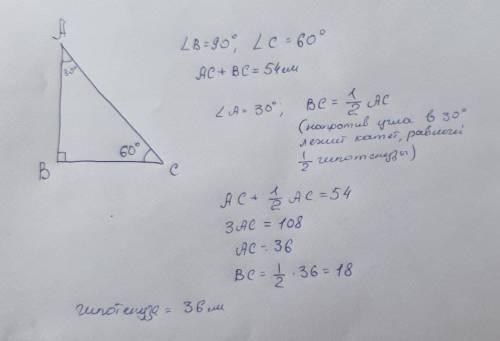 A
30°
B
60°
C
∠B=90°, ∠C=60°
AC+BC=54см
∠A=30°; BC=1/2 AC
(напротив угла в 30°
лежит катет, равный
1/2 гипотенузы)
AC+1/2 AC=54
3AC=108
AC=36
BC=1/2·36=18
гипотенуза=36см